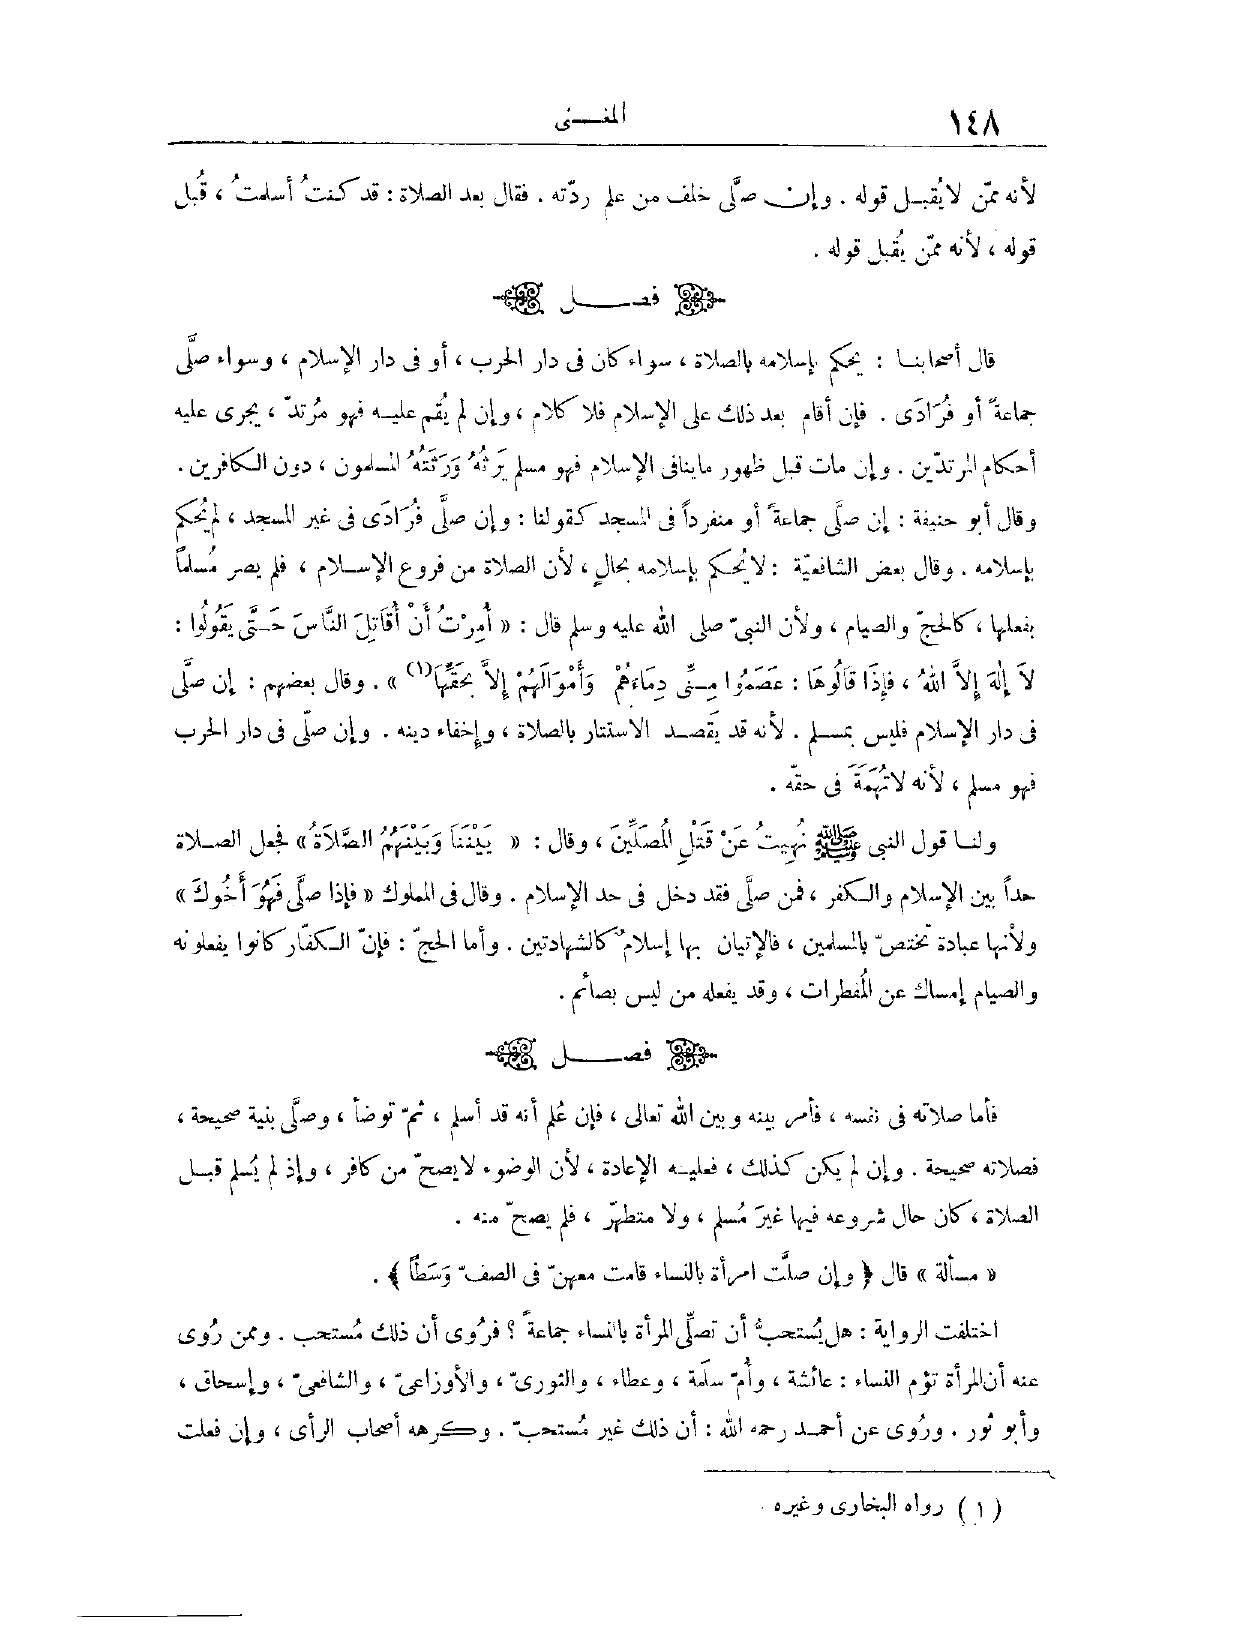 ١٤٨
المغنى
لأنه ممّن لا يُقبل قوله . وإن صلَّى خلف من علم ردّته . فقال بعد الصلاة : قد كنتُ أسلمتُ ، قُبل
قوله ، لأنه ممّن يُقبل قوله .
فصل
قال أصحابنا : يحكم بإسلامه بالصلاة ، سواء كان فى دار الحرب ، أو فى دار الإسلام ، وسواء صلَّى
جماعةً أو فُرَادَى . فإن أقام بعد ذلك على الإسلام فلا كلام ، وإن لم يُقم عليه فهو مُرتدّ ، يجرى عليه
أحكام المرتدّين . وإن مات قبل ظهور ماينافى الإسلام فهو مسلم يَرثُهُ وَرَثَتُهُ المسلمون ، دون الكافرين .
وقال أبو حنيفة : إن صلَّى جماعةً أو منفرداً فى المسجد كقولنا : وإن صلَّى فُرَادَى فى غير المسجد ، لم يُحكم
بإسلامه . وقال بعض الشافعيّة : لا يُحكم بإسلامه بحالٍ ، لأن الصلاة من فروع الإسلام ، فلم يصر مُسلماً
بفعلها ، كالحجّ والصيام ، ولأن النبىّ صلى الله عليه وسلم قال : « أُمِرْتُ أَنْ أُقَاتِلَ النَّاسَ حَتَّى يَقُولُوا :
لاَ إِلٰهَ إِلاَّ اللهُ ، فَإِذَا قَالُوهَا : عَصَمُوا مِنِّى دِمَاءَهُمْ وَأَمْوَالَهُمْ إِلاَّ بحَقِّهَا(١) » . وقال بعضهم : إن صلَّى
فى دار الإسلام فليس بمسلم . لأنه قد يَقصد الاستتار بالصلاة ، وإخفاء دينه . وإن صلّى فى دار الحرب
فهو مسلم ، لأنه لا تُهَمَةَ فى حقّه .
ولنا قول النبى ﷺ نُهِيتُ عَنْ قَتْلِ المُصَلِّينَ ، وقال : « بَيْنَنَا وَبَيْنَهُمْ الصَّلَاةُ » فجعل الصلاة
حداً بين الإسلام والكفر ، فمن صلَّى فقد دخل فى حد الإسلام . وقال فى المملوك « فإذا صلَّى فَهُوَ أَخُوكَ »
ولأنها عبادة تختصّ بالمسلمين ، فالإتيان بها إسلامٌ كالشهادتين . وأما الحجّ : فإنّ الكفّار كانوا يفعلونه
والصيام إمساك عن المُفطرات ، وقد يفعله من ليس بصائم .
فصل
فأما صلاته فى نفسه ، فأمر بينه وبين الله تعالى ، فإن عُلم أنه قد أسلم ، ثمّ توضأ ، وصلَّى بنية صحيحة ،
فصلاته صحيحة . وإن لم يكن كذلك ، فعليه الإعادة ، لأن الوضوء لا يصحّ من كافر ، وإذ لم يُسلم قبل
الصلاة ، كان حال شروعه فيها غيرَ مُسلم ، ولا متطهّر ، فلم يصحّ منه .
« مسألة » قال ﴿ وإن صلَّت امرأة بالنساء قامت معهنّ فى الصفّ وَسَطاً ﴾ .
اختلفت الرواية : هل يُستحبُّ أن تصلِّى المرأة بالنساء جماعةً ؟ فرُوى أن ذلك مُستحب . وممن رُوى
عنه أن المرأة تؤم النساء : عائشة ، وأُمّ سلَمة ، وعطاء ، والثورىّ ، والأوزاعىّ ، والشافعىّ ، وإسحاق ،
وأبو ثور . ورُوى عن أحمد رحمه الله : أن ذلك غير مُستحبّ . وكرهه أصحاب الرأى ، وإن فعلت
( ١ ) رواه البخارى وغيره .